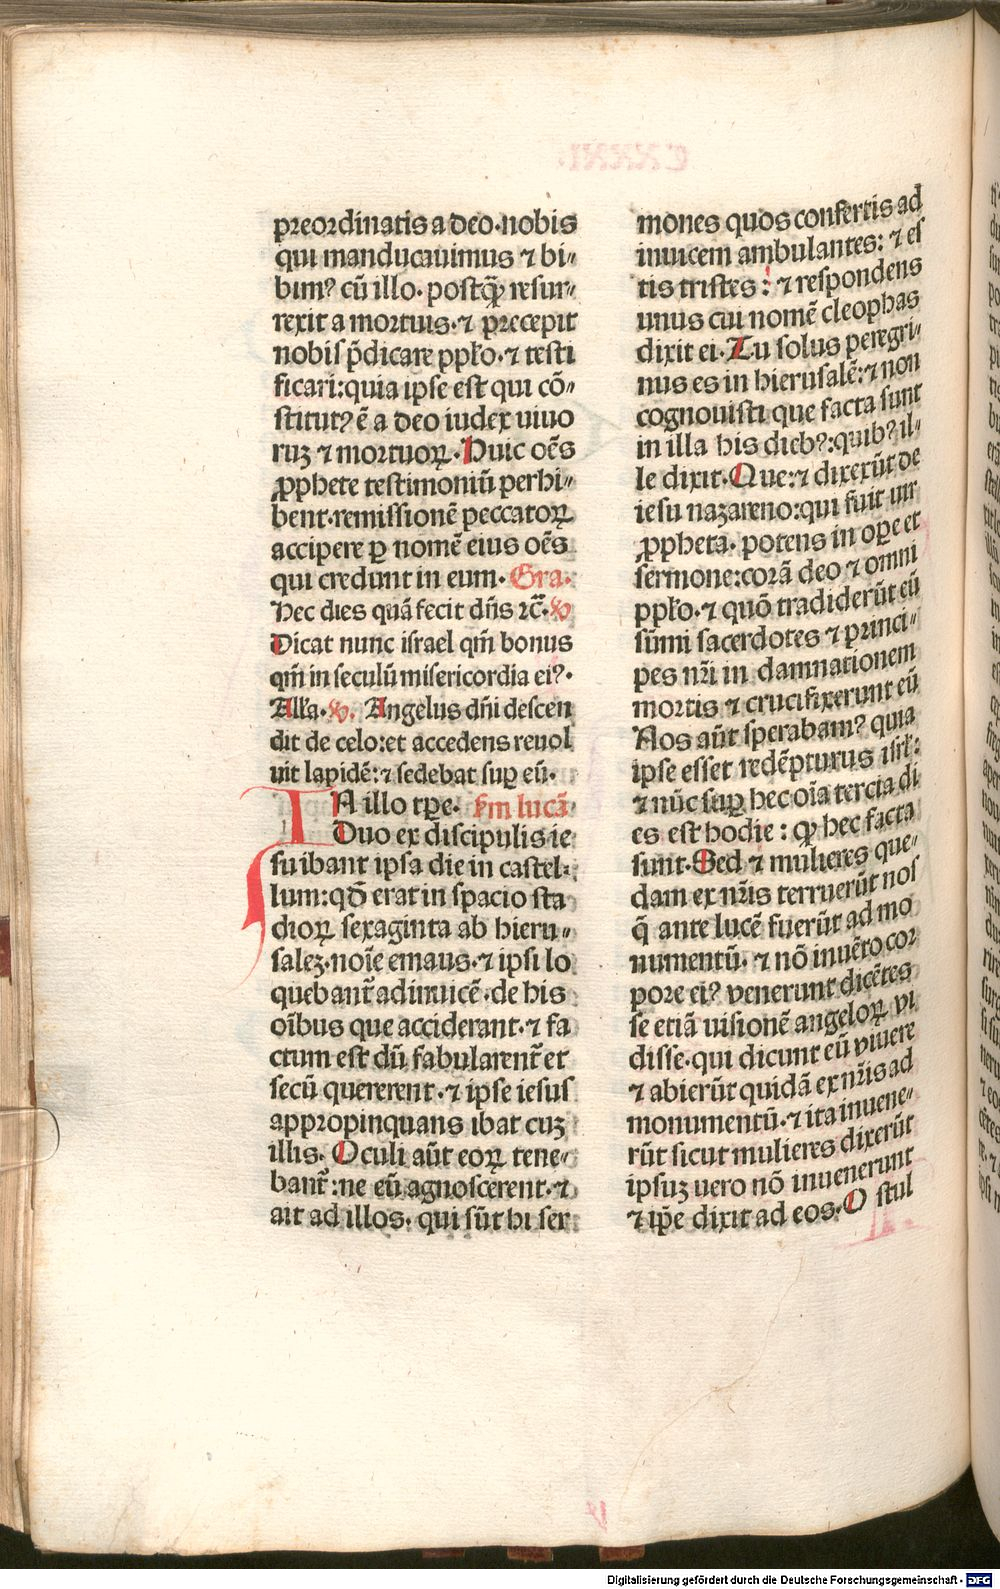 preordinatis a deo·nobis
qui manducauimus ⁊ bi⸗
bimꝰ cū illo· postꝙ̄ resur⸗
rexit a mortuis·⁊ precepit
nobis p̄dicare ppło·⁊ testi
ficari:quia ipse est qui cō⸗
stitutꝰ ē a deo iudex uiuo
ruꝫ ⁊ mortuoꝝ·Huic oēs
ꝓphete testimoniū perhi⸗
bent·remissionē peccatoꝝ
accipere ꝑ nomē eius oēs
qui credunt in eum· Gra·
Hec dies quā fecit dn̄s ⁊c̄·℣
Dicat nunc israel qm̄ bonus
qm̄ in seculū misericordia eiꝰ·
Ałła·℣. Angelus dn̄i descen
dit de celo:et accedens reuol
uit lapidē:⁊ sedebat suꝑ eū·
IN illo tꝑe· Sm̄ lucā·
Duo ex discipulis ie
su ibant ipsa die in castel⸗
lum:qd̄ erat in spacio sta
dioꝝ sexaginta ab hieru⸗
saleꝫ·noīe emaus·⁊ ipsi lo
quebant᷑ adinuicē·de his
oībus que acciderant·⁊ fa
ctum est dū fabularent᷑ et
secū quererent·⁊ ipse iesus
appropinquans ibat cuꝫ
illis· Oculi aūt eoꝝ tene⸗
bant᷑:ne eū agnoscerent·⁊
ait ad illos· qui sūt hi ser
mones quos confertis ad
inuicem ambulantes: ⁊ es
tis tristes: ⁊ respondens
unus cui nomē cleophas
dixit ei·Tu solus peregri⸗
nus es in hierusalē:⁊ non
cognouisti que facta sunt
in illa his diebꝰ:quibꝰ il⸗
le dixit·Que:⁊ dixerūt de
iesu nazareno:qui fuit uir
ꝓpheta· potens in oꝑe et
sermone:corā deo ⁊ omni
ppło·⁊ quō tradiderūt eū
sūmi sacerdotes ⁊ princi⸗
pes nr̄i in damnationem
mortis ⁊ crucifixerunt eū
Nos aūt sperabamꝰ quia
ipse esset redēpturus isrł:
⁊ nūc suꝑ hec oīa tercia di
es est hodie: ꝙ hec facta
sunt·Sed ⁊ mulieres que⸗
dam ex nr̄is terruerūt nos
q̄ ante lucē fuerūt ad mo
numentū· ⁊ nō inuēto cor
pore eiꝰ venerunt dicētes
se etiā uisionē angeloꝝ vi
disse·qui dicunt eū viuere
⁊ abierūt quidā ex nr̄is ad
monumentū·⁊ ita inuene⸗
rūt sicut mulieres dixerūt
ipsuꝫ uero nō inuenerunt
⁊ ip̄e dixit ad eos·O stul
Digitalisierung gefördert durch die Deutsche Forschungsgemeinschaft - DFG